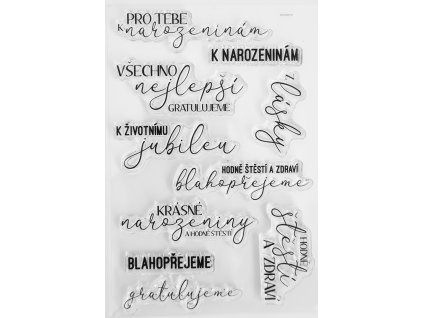 PRO TEBE
K narozeninám
K NAROZENINÁM
VŠECHNO
nejlepší
GRATULUJEME
z lásky
K ŽIVOTNÍMU
jubileu
HODNĚ ŠTĚSTÍ A ZDRAVÍ
blahopřejeme
KRÁSNÉ
narozeniny
A HODNĚ ŠTĚSTÍ
HODNĚ
štěstí
A ZDRAVÍ
BLAHOPŘEJEME
gratulujeme